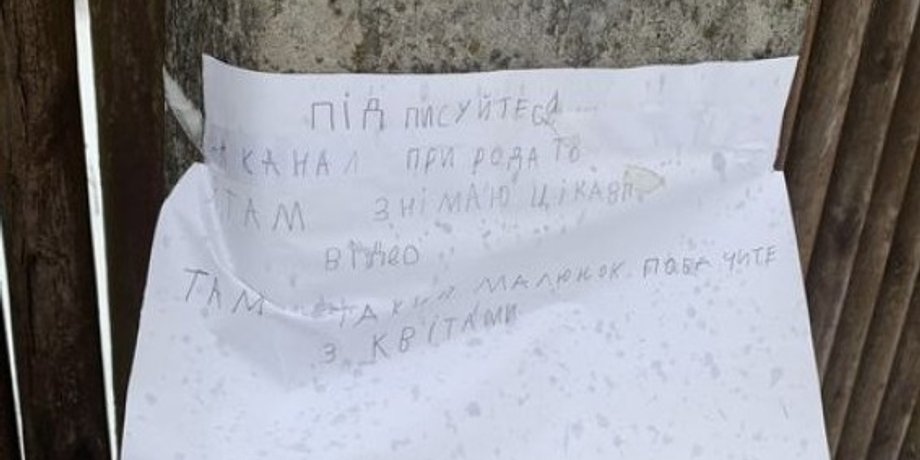 ПІД ПИСУЙТЕСЯ
НА КАНАЛ ПРИРОДА ТВ
ТАМ ЗНІМАЮ ЦІКАВІ
ВІДЕО
ТАМ ТАКИЙ МАЛЮНОК ПОБАЧИТЕ
З КВІТАМИ